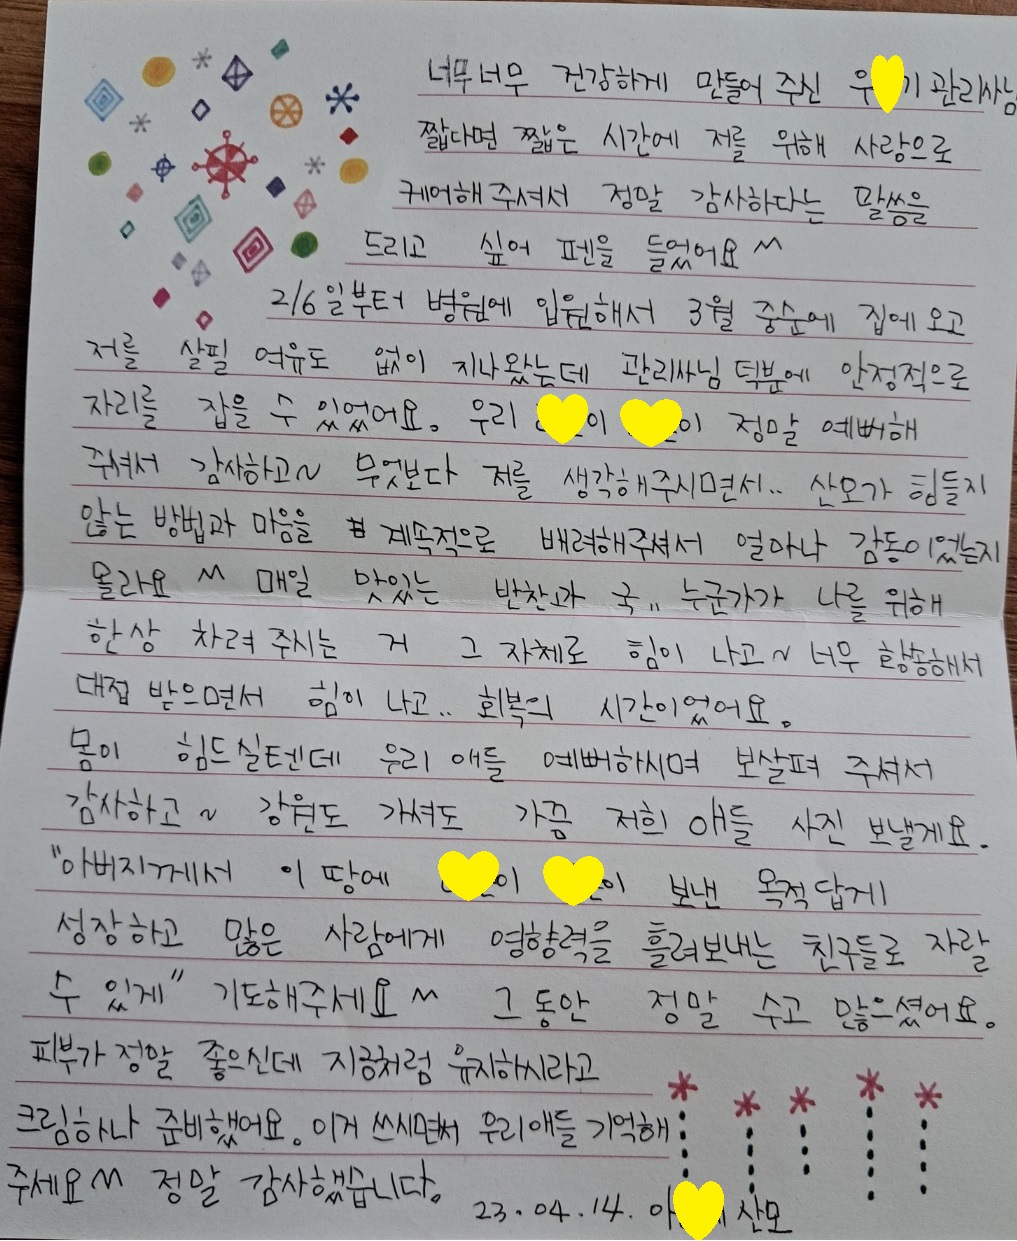 너무너무 건강하게 만들어 주신 우 기 관리사님
짧다면 짧은 시간에 저를 위해 사랑으로
케어해주셔서 정말 감사하다는 말씀을
드리고 싶어 펜을 들었어요 ^^
2/6일부터 병원에 입원해서 3월 중순에 집에 오고
저를 살필 여유도 없이 지나왔는데 관리사님 덕분에 안정적으로
자리를 잡을 수 있었어요. 우리 이 이 정말 예뻐해
주셔서 감사하고~ 무엇보다 저를 생각해주시면서.. 산모가 힘들지
않는 방법과 마음을 계속적으로 배려해주셔서 얼마나 감동이었는지
몰라요 ^^ 매일 맛있는 반찬과 국.. 누군가가 나를 위해
한상 차려 주시는 거 그 자체로 힘이 나고~ 너무 황송해서
대접 받으면서 힘이 나고.. 회복의 시간이었어요.
몸이 힘드실텐데 우리 애들 예뻐하시며 보살펴 주셔서
감사하고~ 강원도 가셔도 가끔 저희 애들 사진 보낼게요.
"아버지께서 이 땅에 이 이 보낸 목적답게
성장하고 많은 사람에게 영향력을 흘려보내는 친구들로 자랄
수 있게" 기도해주세요 ^^ 그동안 정말 수고 많으셨어요.
피부가 정말 좋으신데 지금처럼 유지하시라고
크림하나 준비했어요. 이거 쓰시면서 우리애들 기억해
주세요^^ 정말 감사했습니다.
23.04.14. 산모